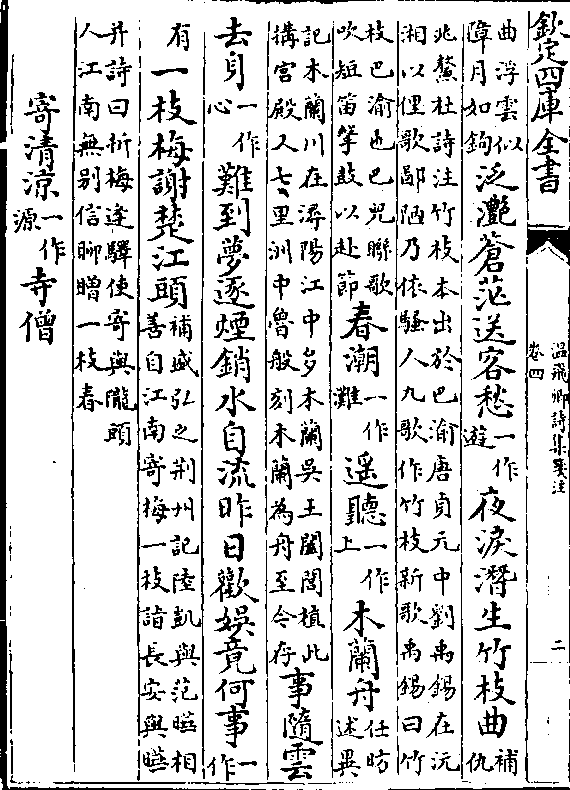 欽定四庫全書
温飛卿詩集箋注
卷四
二
曲浮雲似
障月如鉤
泛灧蒼茫送客愁一作遊夜淚潛生竹枝曲補
仇
兆鰲杜詩注竹枝本出於巴渝唐貞元中劉禹錫在沅
湘以俚歌鄙陋乃依騷人九歌作竹枝新歌禹錫曰竹
枝巴渝也巴兒聯歌
吹短笛擊鼓以赴節
春潮一作灘遥聽一作上木蘭舟任昉
述異
記木蘭川在潯陽江中多木蘭吳王闔閭植此
搆宮殿人七里洲中魯般刻木蘭為舟至今存
事隨雲
去身一作心難到夢逐煙銷水自流昨日歡娛竟何事一作
有一枝梅謝楚江頭補盛弘之荆州記陸凱與范曄相
善自江南寄梅一枝詣長安與曄
并詩曰折梅逢驛使寄與隴頭
人江南無别信聊贈一枝春
寄清凉一作源寺僧